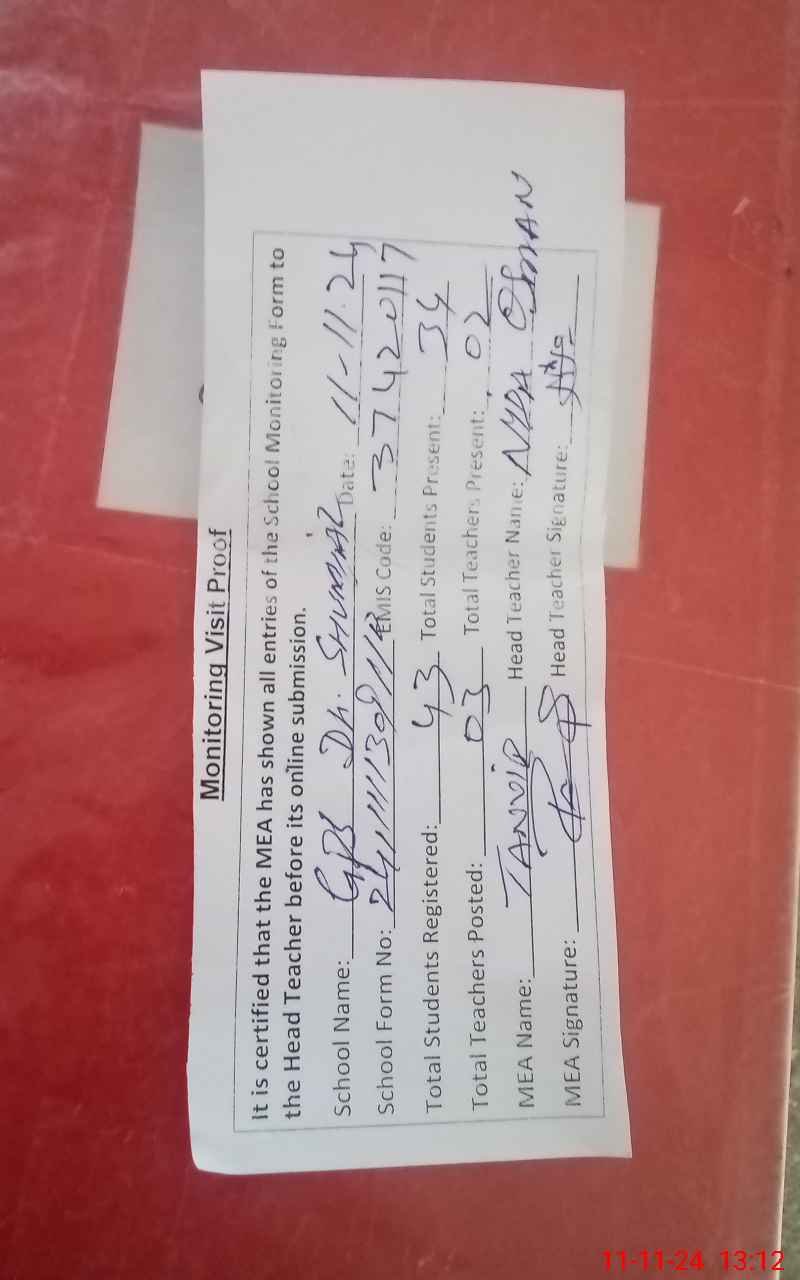 Monitoring Visit Proof
It is certified that the MEA has shown all entries of the School Monitoring Form to
the Head Teacher before its online submission.
School Name: GPS Dh. SHUMAL Date: 11-11.24
School Form No: EMIS Code: 37420117
Total Students Registered: 43 Total Students Present: 34
Total Teachers Posted: 03 Total Teachers Present: 02
MEA Name: TANVIR Head Teacher Name: NYDA OSMAN
MEA Signature: Head Teacher Signature:
11-11-24 13:12